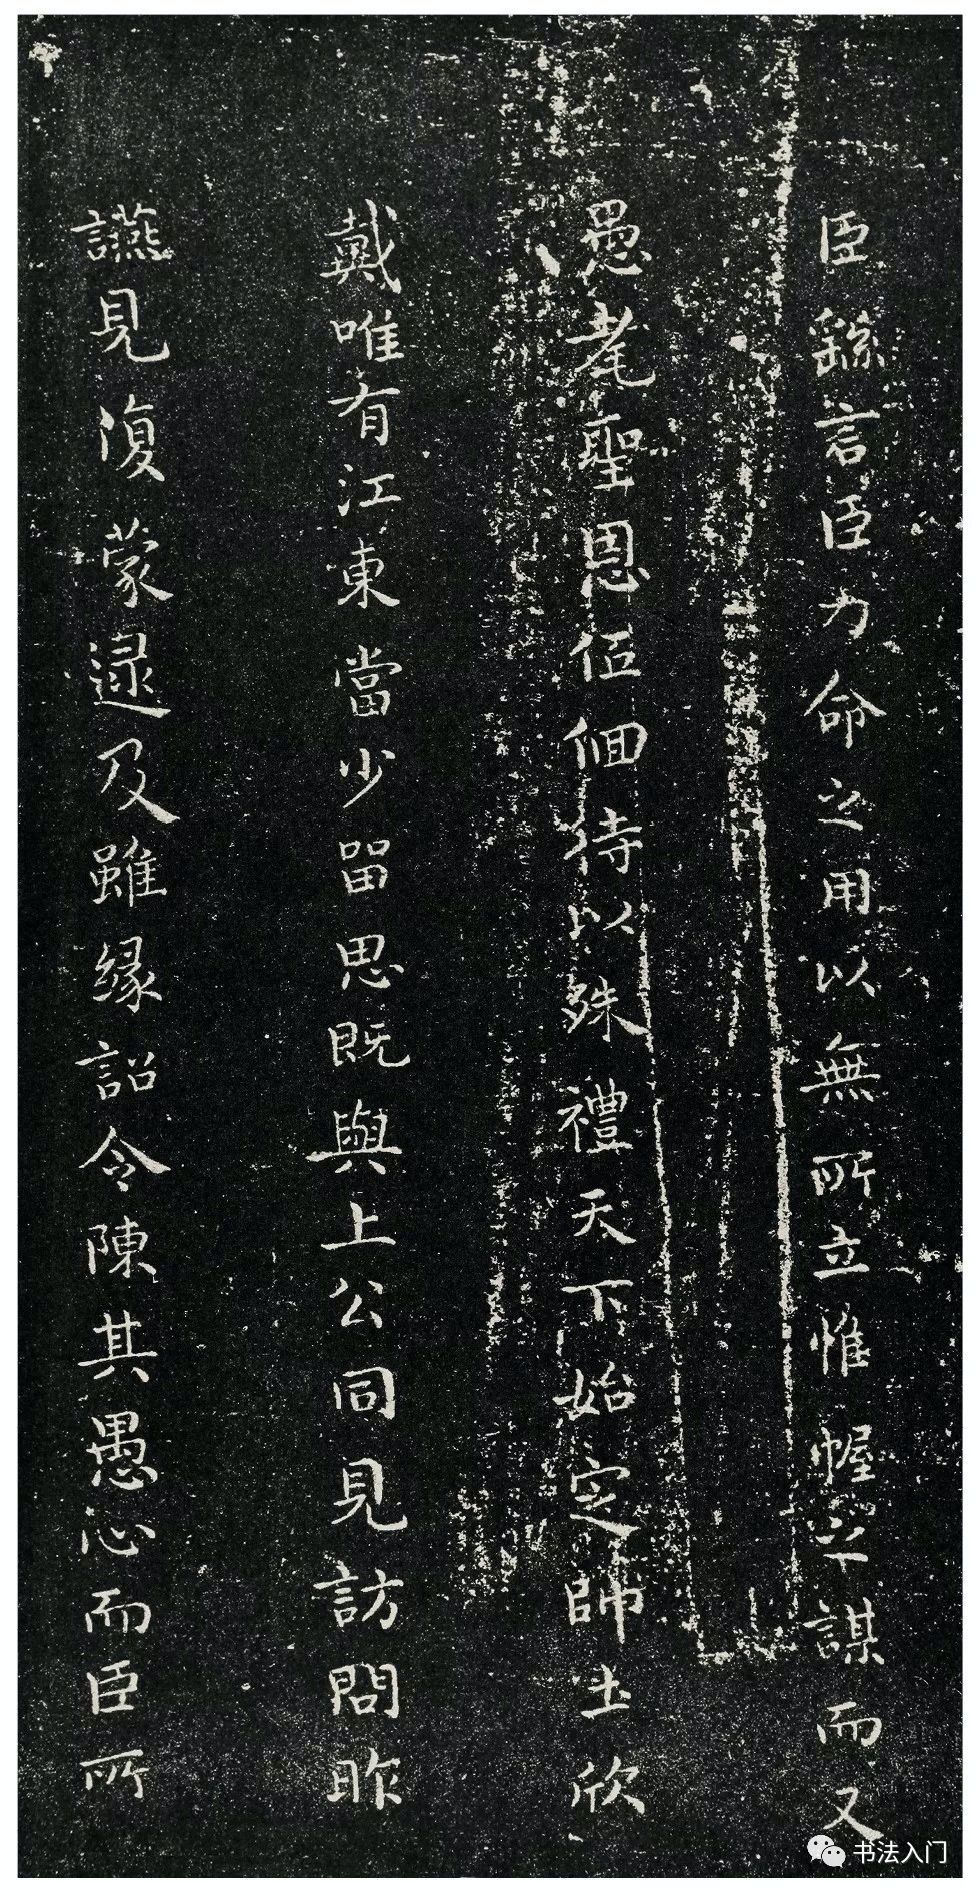 臣繇言臣力命之用以無所立惟幄之謀而又
愚耄聖恩低佪待以殊禮天下始定師土欣
戴唯有江東當少留思既與上公同見訪問昨
讌見復蒙逮及雖緣詔令陳其愚心而臣所
书法入门